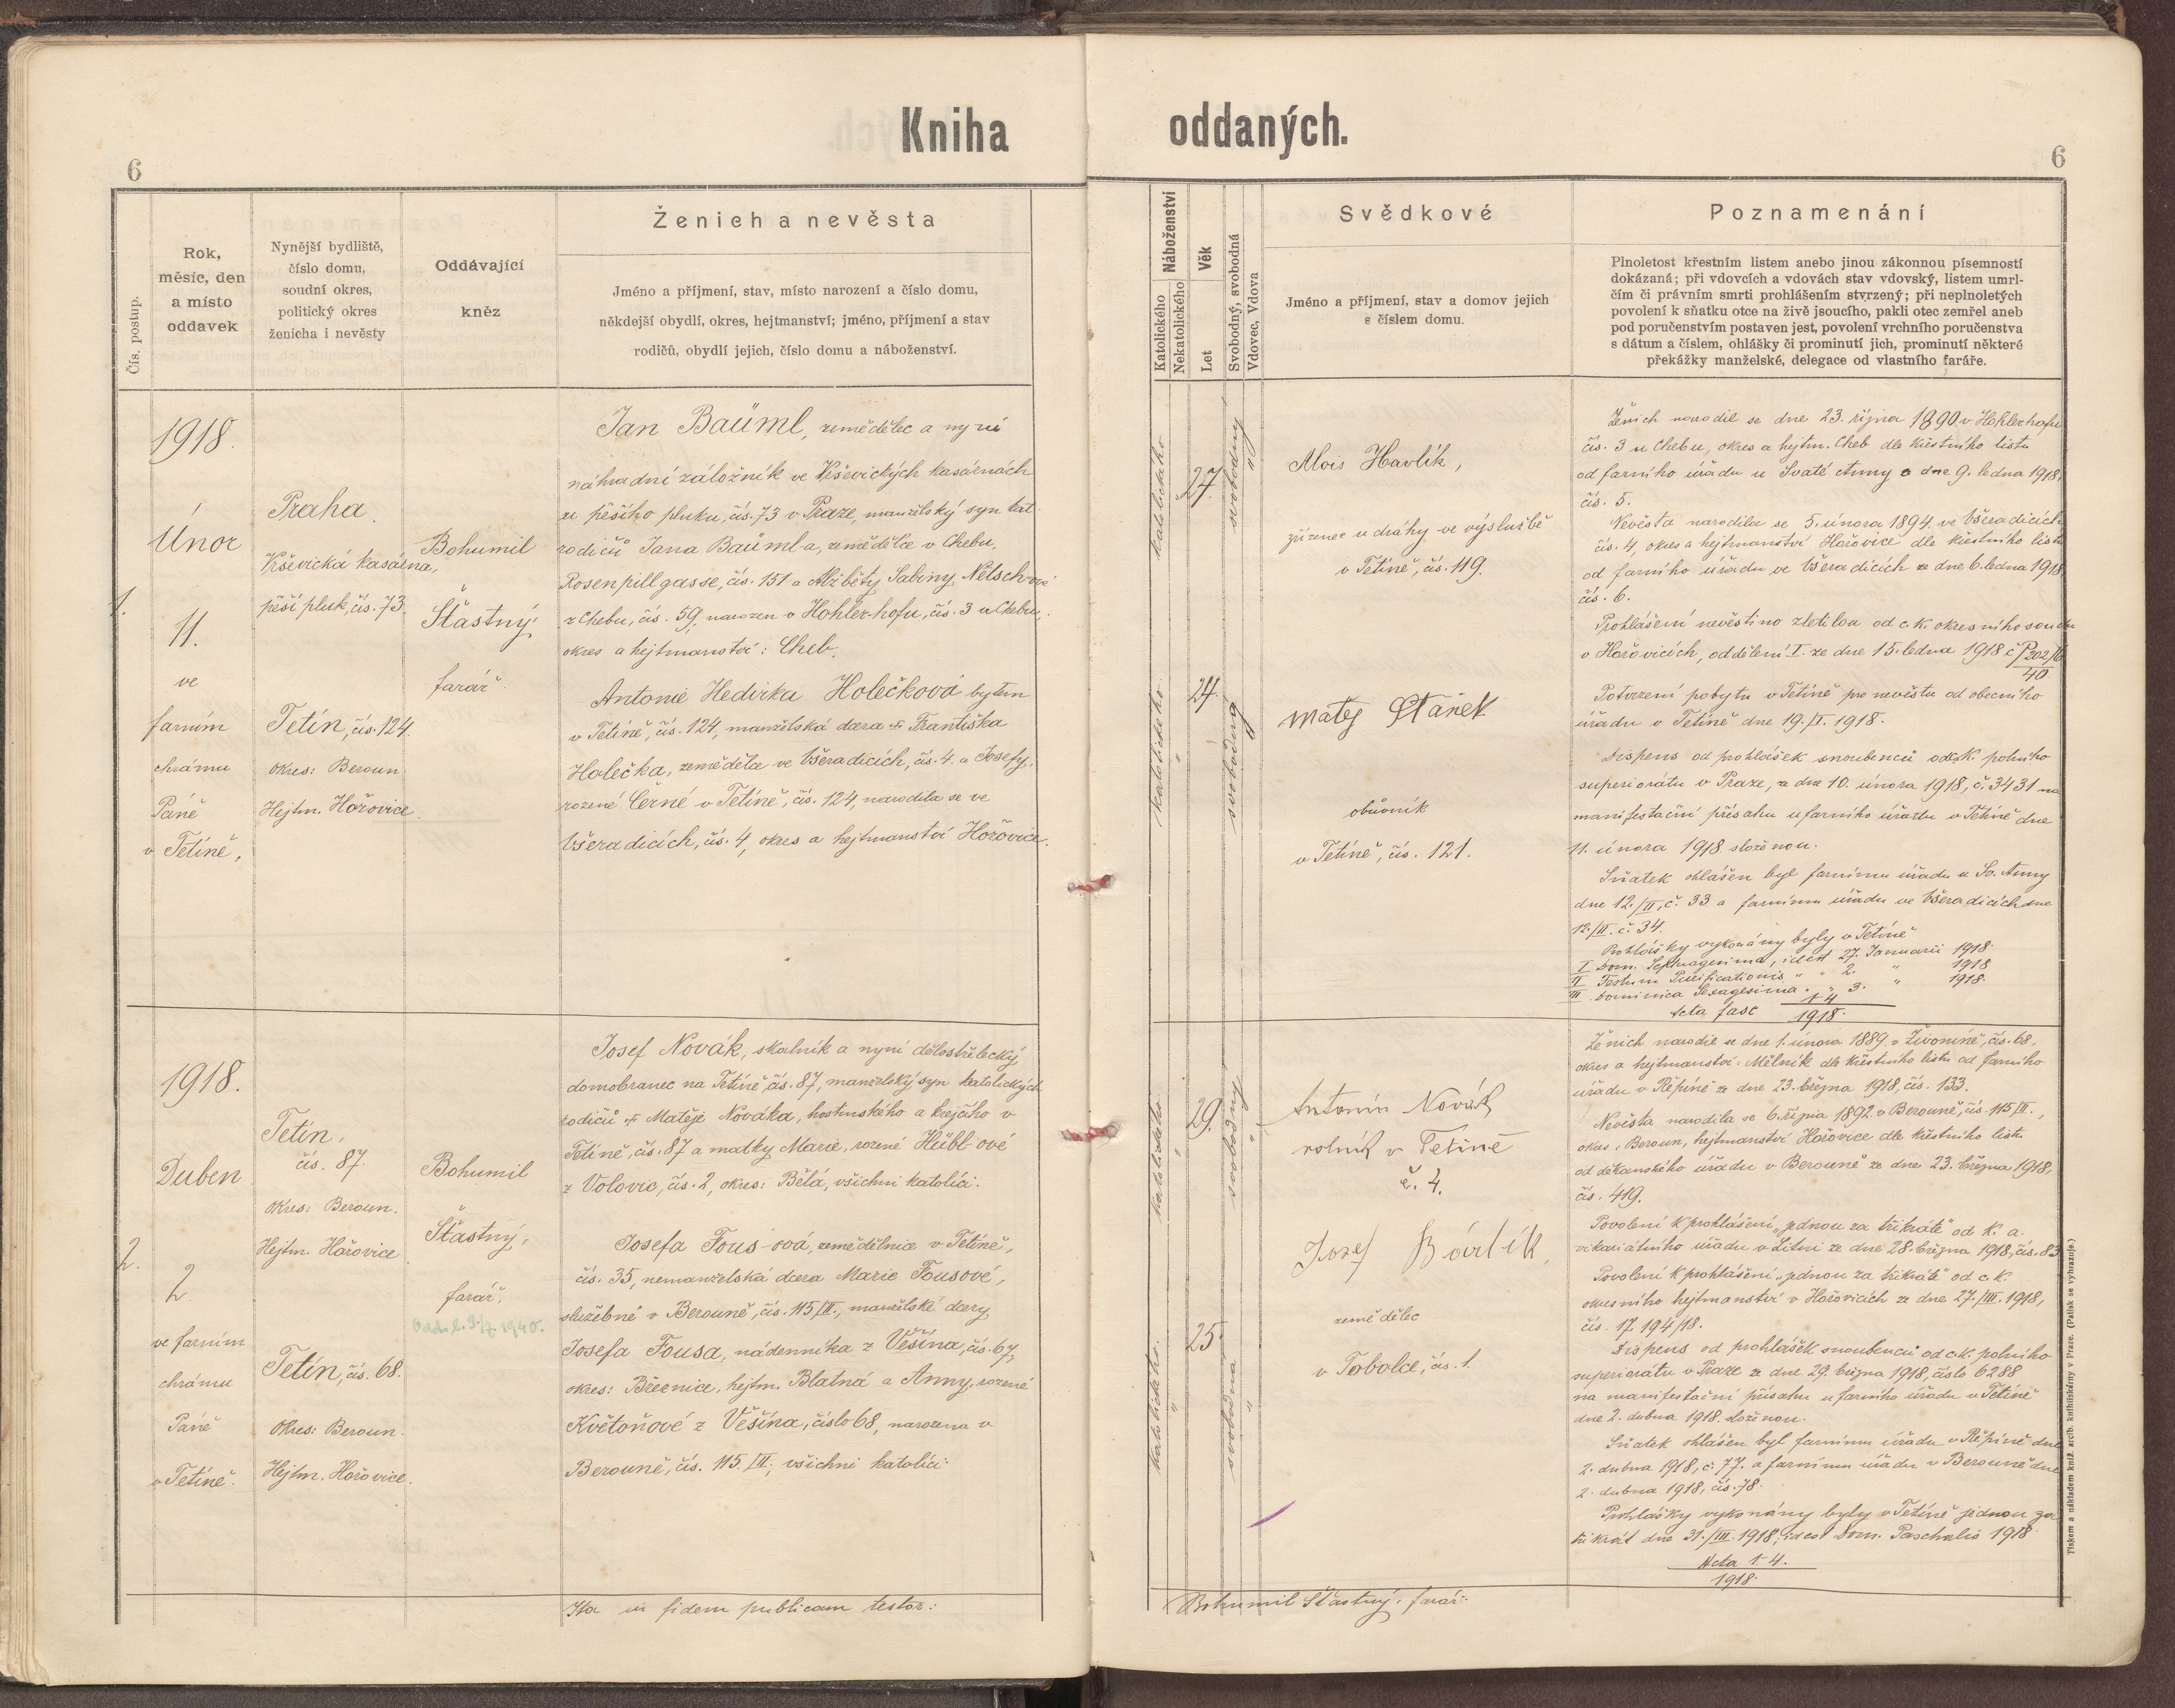 Kniha oddaných.
6
6
Čís. postup.
Rok,
měsíc, den
a místo
oddavek
Nynější bydliště,
číslo domu,
soudní okres,
politický okres
ženicha i nevěsty
Oddávající
kněz
Ženich a nevěsta
Jméno a příjmení, stav, místo narození a číslo domu,
někdejší obydlí, okres, hejtmanství; jméno, příjmení a stav
rodičů, obydlí jejich, číslo domu a náboženství.
Náboženství
Katolického
Nekatolického
Věk
Let
Svobodný, svobodná
Vdovec, Vdova
Svědkové
Jméno a příjmení, stav a domov jejich
s číslem domu.
Poznamenání
Plnoletost křestním listem anebo jinou zákonnou písemností
dokázaná; při vdovcích a vdovách stav vdovský, listem umrl-
čím či právním smrti prohlášením stvrzený; při neplnoletých
povolení k sňatku otce na živě jsoucího, pakli otec zemřel aneb
pod poručenstvím postaven jest, povolení vrchního poručenstva
s dátum a číslem, ohlášky či prominutí jich, prominutí některé
překážky manželské, delegace od vlastního faráře.
1.
1918.
Únor
11.
ve
farním
chrámu
Páně
v Tetíně,
Praha
Vršovická kasárna,
pěší pluk, čís. 73.
Tetín, čís. 124.
okres: Beroun
Hejtm. Hořovice.
Bohumil
Šťastný,
farář
Jan Baüml, zemědělec a nyní
náhradní záložník ve Vršovických kasárnách
ze pěšího pluku, čís. 73 v Praze, manželský syn kat.
rodičů Jana Baüml-a, zemědělce v Chebu,
Rosenpillgasse, čís. 151 a Alžběty Sabiny Netsch-ové
z Chebu, čís. 59, narozen v Hohler-hofu, čís. 3 u Chebu,
okres a hejtmanství: Cheb.
Antonie Hedvika Holečková bytem
v Tetíně, čís. 124, manželská dcera + Františka
Holečka, zemědělce ve Všeradicích, čís. 4. a Josefy,
rozené Černé v Tetíně, čís. 124, narodila se ve
Všeradicích, čís. 4, okres a hejtmanství Hořovice.
katolického
"
27.
svobodný
"
katolického
"
24.
svobodná
"
Alois Havlík,
zřízenec u dráhy ve výslužbě
v Tetíně, čís. 119.
Matěj Staněk
obuvník
v Tetíně, čís. 121.
Ženich narodil se dne 23. října 1890 v Hohlerhofu
čís. 3 u Chebu, okres a hejtm. Cheb dle křestního listu
od farního úřadu u Svaté Anny o dne 9. ledna 1918,
čís. 5.
Nevěsta narodila se 5. února 1894 ve Všeradicích
čís. 4, okres a hejtmanství Hořovice dle křestního listu
od farního úřadu ve Všeradicích ze dne 6. ledna 1918
čís. 6.
Prohlášení nevěstino zletilou od c. k. okresního soudu
v Hořovicích, oddělení I. ze dne 15. ledna 1918 č P 202/16
40
Potvrzení pobytu v Tetíně pro nevěstu od obecního
úřadu v Tetíně dne 19./I. 1918.
Dispens od prohlášek snoubenců od c. k. polního
superiorátu v Praze, ze dne 10. února 1918, č. 3431 na
manifestační přísahu u farního úřadu v Tetíně dne
11. února 1918 složenou.
Sňatek ohlášen byl farnímu úřadu u Sv. Anny
dne 12./II. č. 33 a farnímu úřadu ve Všeradicích dne
12./II. č. 34.
Prohlášky vykonány byly v Tetíně
I Dom. Septuagesima, idest 27. Januarii 1918.
II Festum Purificationis " " 2. " 1918
III Dominica Sexagesima " " 3. " 1918.
Acta fasc 1 4
1918.
2.
1918.
Duben
2.
ve farním
chrámu
Páně
v Tetíně.
Tetín,
čís. 87.
okres: Beroun.
Hejtm. Hořovice
Tetín, čís. 68.
Okres: Beroun.
Hejtm. Hořovice.
Bohumil
Šťastný,
farář.
1940.
Josef Novák, skalník a nyní dělostřelecký
domobranec na Tetíně čís. 87, manželský syn katolických
rodičů + Matěje Nováka, hostinského a krejčího v
Tetíně, čís. 87 a matky Marie, rozené Hübl-ové
z Volovic, čís. 2, okres: Bělá, všichni katolíci.
Josefa Fous-ová, zemědělnice v Tetíně,
čís. 35, nemanželská dcera Marie Fousové,
služebné v Berouně, čís. 115/III., manželské dcery
Josefa Fousa, nádenníka z Věšína, čís. 67,
okres: Březnice, hejtm. Blatná a Anny, rozené
Květoňové z Věšína, číslo 68, narozena v
Berouně, čís. 115. III., všichni katolíci.
katolického
"
29.
svobodný
"
katolického.
"
25.
svobodná
"
Antonín Novák
rolník v Tetíně
č. 4.
Josef Bártík,
zemědělec
v Tobolce, čís. 1.
Ženich narodil se dne 1. února 1889 v Živoníně, čís. 68,
okres a hejtmanství: Mělník dle křestního listu od farního
úřadu v Řepíně ze dne 23. března 1918, čís. 133.
Nevěsta narodila se 6. října 1892 v Berouně, čís. 115/III.,
okres: Beroun, hejtmanství Hořovice dle křestního listu
od děkanského úřadu v Berouně ze dne 23. března 1918,
čís. 419.
Povolení k prohlášení "jednou za třikráte" od k. a.
vikariátního úřadu v Litni ze dne 28. března 1918, čís. 83
Povolení k prohlášení "jednou za třikráte" od c. k.
okresního hejtmanství v Hořovicích ze dne 27./III. 1918,
čís. 17.194/18.
Dispens od prohlášek snoubenců od c. k. polního
superiorátu v Praze ze dne 29. března 1918, číslo 6288
na manifestační přísahu u farního úřadu v Tetíně
dne 2. dubna 1918. složenou.
Sňatek ohlášen byl farnímu úřadu v Řepíně dne
2. dubna 1918, č. 77. a farnímu úřadu v Berouně dne
2. dubna 1918, čís. 78.
Prohlášky vykonány byly v Tetíně jednou za
třikrát dne 31./III. 1918, idest Dom. Paschalis 1918.
Acta 1. 4.
1918.
Ita in fidem publicam testor:
Bohumil Šťastný, farář.
Tiskem a nákladem kníž. arcib. knihtiskárny v Praze. (Patisk se vyhrazuje.)